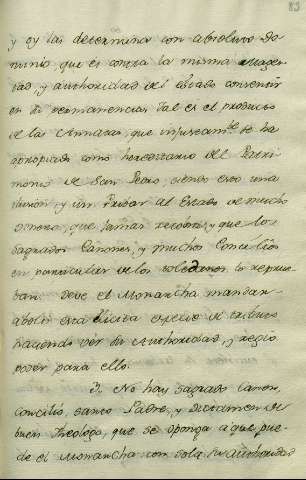 83
y oy las determina con absoluto do
minio que es contra la misma Mages
tad, y authoridad del Estado convertir
en su permanencias. Tal es el producto
de las Annatas, que injustam.te se ha
apropiado como hereditario del Patri
monio de San Pedro, siendo esto una
y un privar al Estado de mucho
dinero, que jamas recobra, y que los
sagrados Canones, y muchos Concilios
en particular de los toledanos lo reprue
ban. Deve el Monarcha mandar
abolir esta ilicita especie de tributo
haciendo ver su Authoridad, y regio
poder para ello.
No hay sagrado canon,
concilio, santo Padre, y Dictamen de
buen Theologo, que se oponga a que pue
de el Monarcha con sola su authoridad